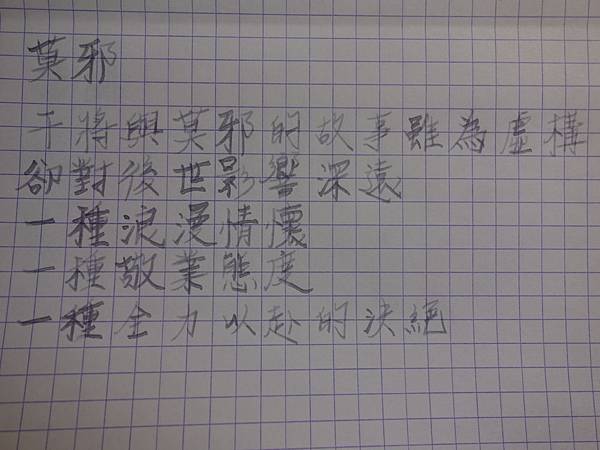 莫邪
干將與莫邪的故事雖為虛構
卻對後世影響深遠
一種浪漫情懷
一種敬業態度
一種全力以赴的決絕